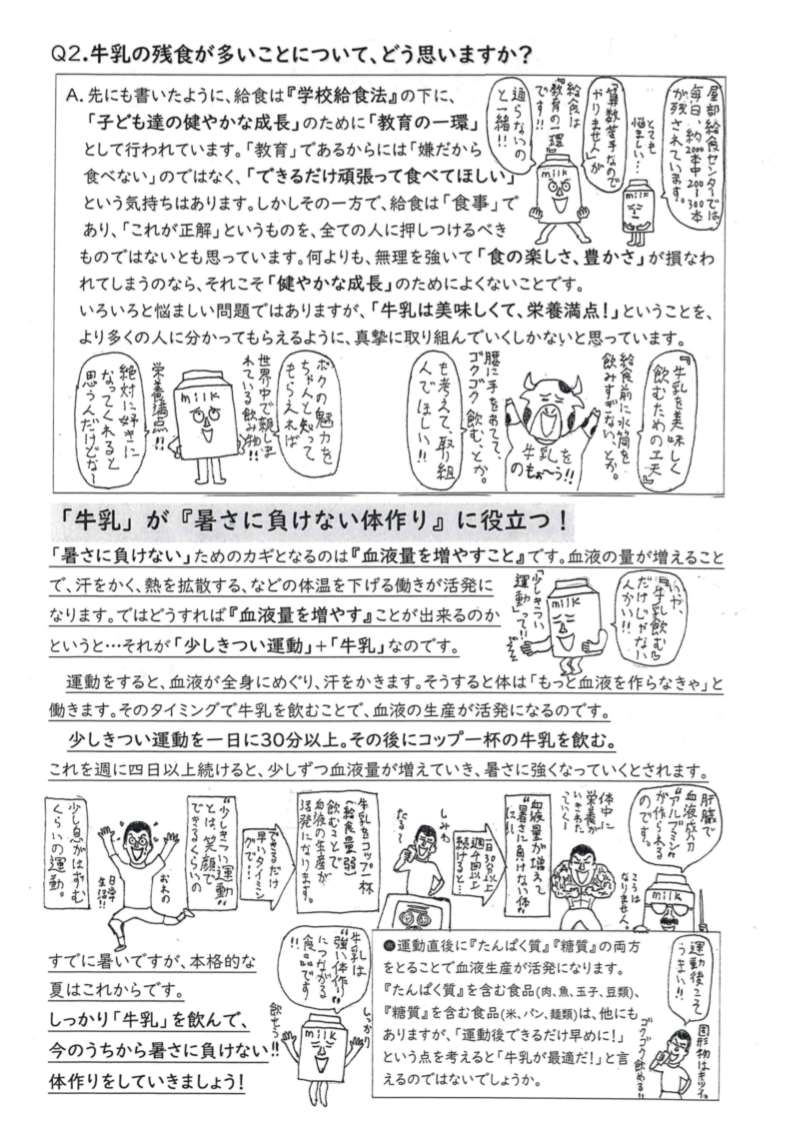 Q2.牛乳の残食が多いことについて、どう思いますか？
A. 先にも書いたように、給食は『学校給食法』の下に、
「子ども達の健やかな成長」のために「教育の一環」
として行われています。「教育」であるからには「嫌だから
食べない」のではなく、「できるだけ頑張って食べてほしい」
という気持ちはあります。しかしその一方で、給食は「食事」で
あり、「これが正解」というものを、全ての人に押しつけるべき
ものではないとも思っています。何よりも、無理を強いて「食の楽しさ、豊かさ」が損なわ
れてしまうのなら、それこそ「健やかな成長」のためによくないことです。
いろいろと悩ましい問題ではありますが、「牛乳は美味しくて、栄養満点！」ということを、
より多くの人に分かってもらえるように、真摯に取り組んでいくしかないと思っています。
屋部給食センターでは、
毎日、約2000本中200～300本
が残されています。
とても
悩ましい…
milk
「算数苦手なので
やりません」が
通らないの
と一緒!!
給食は
『教育の一環』
です!!
milk
『牛乳を美味しく
飲むための工夫』
給食前に水筒を
飲みすぎない、とか。
牛乳を
のもぉ〜う!!
腰に手をあてて、
ゴクゴク飲む、とか。
も考えて、取り組
んでほしい!!
ボクの魅力を
ちゃんと知って
もらえれば
世界中で親しま
れている飲み物!!
milk
栄養満点!!
絶対に好きに
なってくれると
思うんだけどな〜
「牛乳」が『暑さに負けない体作り』に役立つ！
「暑さに負けない」ためのカギとなるのは『血液量を増やすこと』です。血液の量が増えること
で、汗をかく、熱を拡散する、などの体温を下げる働きが活発に
なります。ではどうすれば『血液量を増やす』ことが出来るのか
というと…それが「少しきつい運動」＋「牛乳」なのです。
いや、
『牛乳飲む』
だけじゃない
んかい!!
milk
「少しきつい
運動」って!!
運動をすると、血液が全身にめぐり、汗をかきます。そうすると体は「もっと血液を作らなきゃ」と
働きます。そのタイミングで牛乳を飲むことで、血液の生産が活発になるのです。
少しきつい運動を一日に30分以上。その後にコップ一杯の牛乳を飲む。
これを週に四日以上続けると、少しずつ血液量が増えていき、暑さに強くなっていくとされます。
少し息がはずむ
くらいの運動。
"少しきつい運動"
とは、笑顔で
できるくらいの
できるだけ
早いタイミン
グで…!
牛乳をコップ一杯
(給食量弱)
飲むことで
血液の生産が
活発になります。
しみわ
たる〜
1日30分以上
週に4回以上
続けると…
血液量が増えて
"暑さに負けない体"
に!!
体中に
栄養が
いきわたっ
ていく〜
肝臓で
血液成分
"アルブミン"
が作られる
のです。
こうは
なりません。
milk
すでに暑いですが、本格的な
夏はこれからです。
しっかり「牛乳」を飲んで、
今のうちから暑さに負けない
体作りをしていきましょう！
牛乳は
"強い体作り"
につながる
食品です
!!
しっかり
milk
飲もう
!!
●運動直後に『たんぱく質』『糖質』の両方
をとることで血液生産が活発になります。
『たんぱく質』を含む食品(肉、魚、玉子、豆類)、
『糖質』を含む食品(米、パン、麺類)は、他にも
ありますが、「運動後できるだけ早めに！」
という点を考えると「牛乳が最適だ！」と言
えるのではないでしょうか。
運動後こそ
うまい!!
固形物はキツイ。
ゴクゴク飲める!!